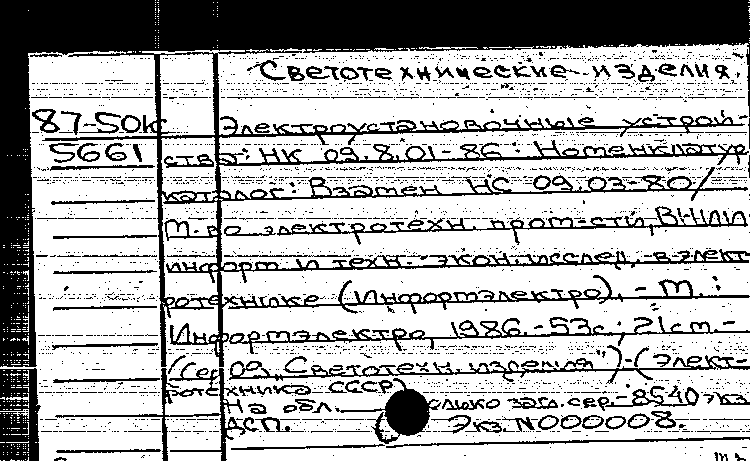 Светотехнические изделия.
87-50к Электроустановочные устрой-
5661 ства: НК 09.8.01-86: Номенклатур
каталог: Взамен НС 09.03-80/
М-во электротехн. пром-сти, ВНИИ
информ. и техн.-экон. исслед. в элект
ротехнике (Информэлектро). - М.:
Информэлектро, 1986.-53с.; 21см.-
(Сер 09, Светотехн. изделия")-(Элект-
ротехника СССР)
На обл. только загл. сер.-8540 экз
ДСП. Экз. N000008.